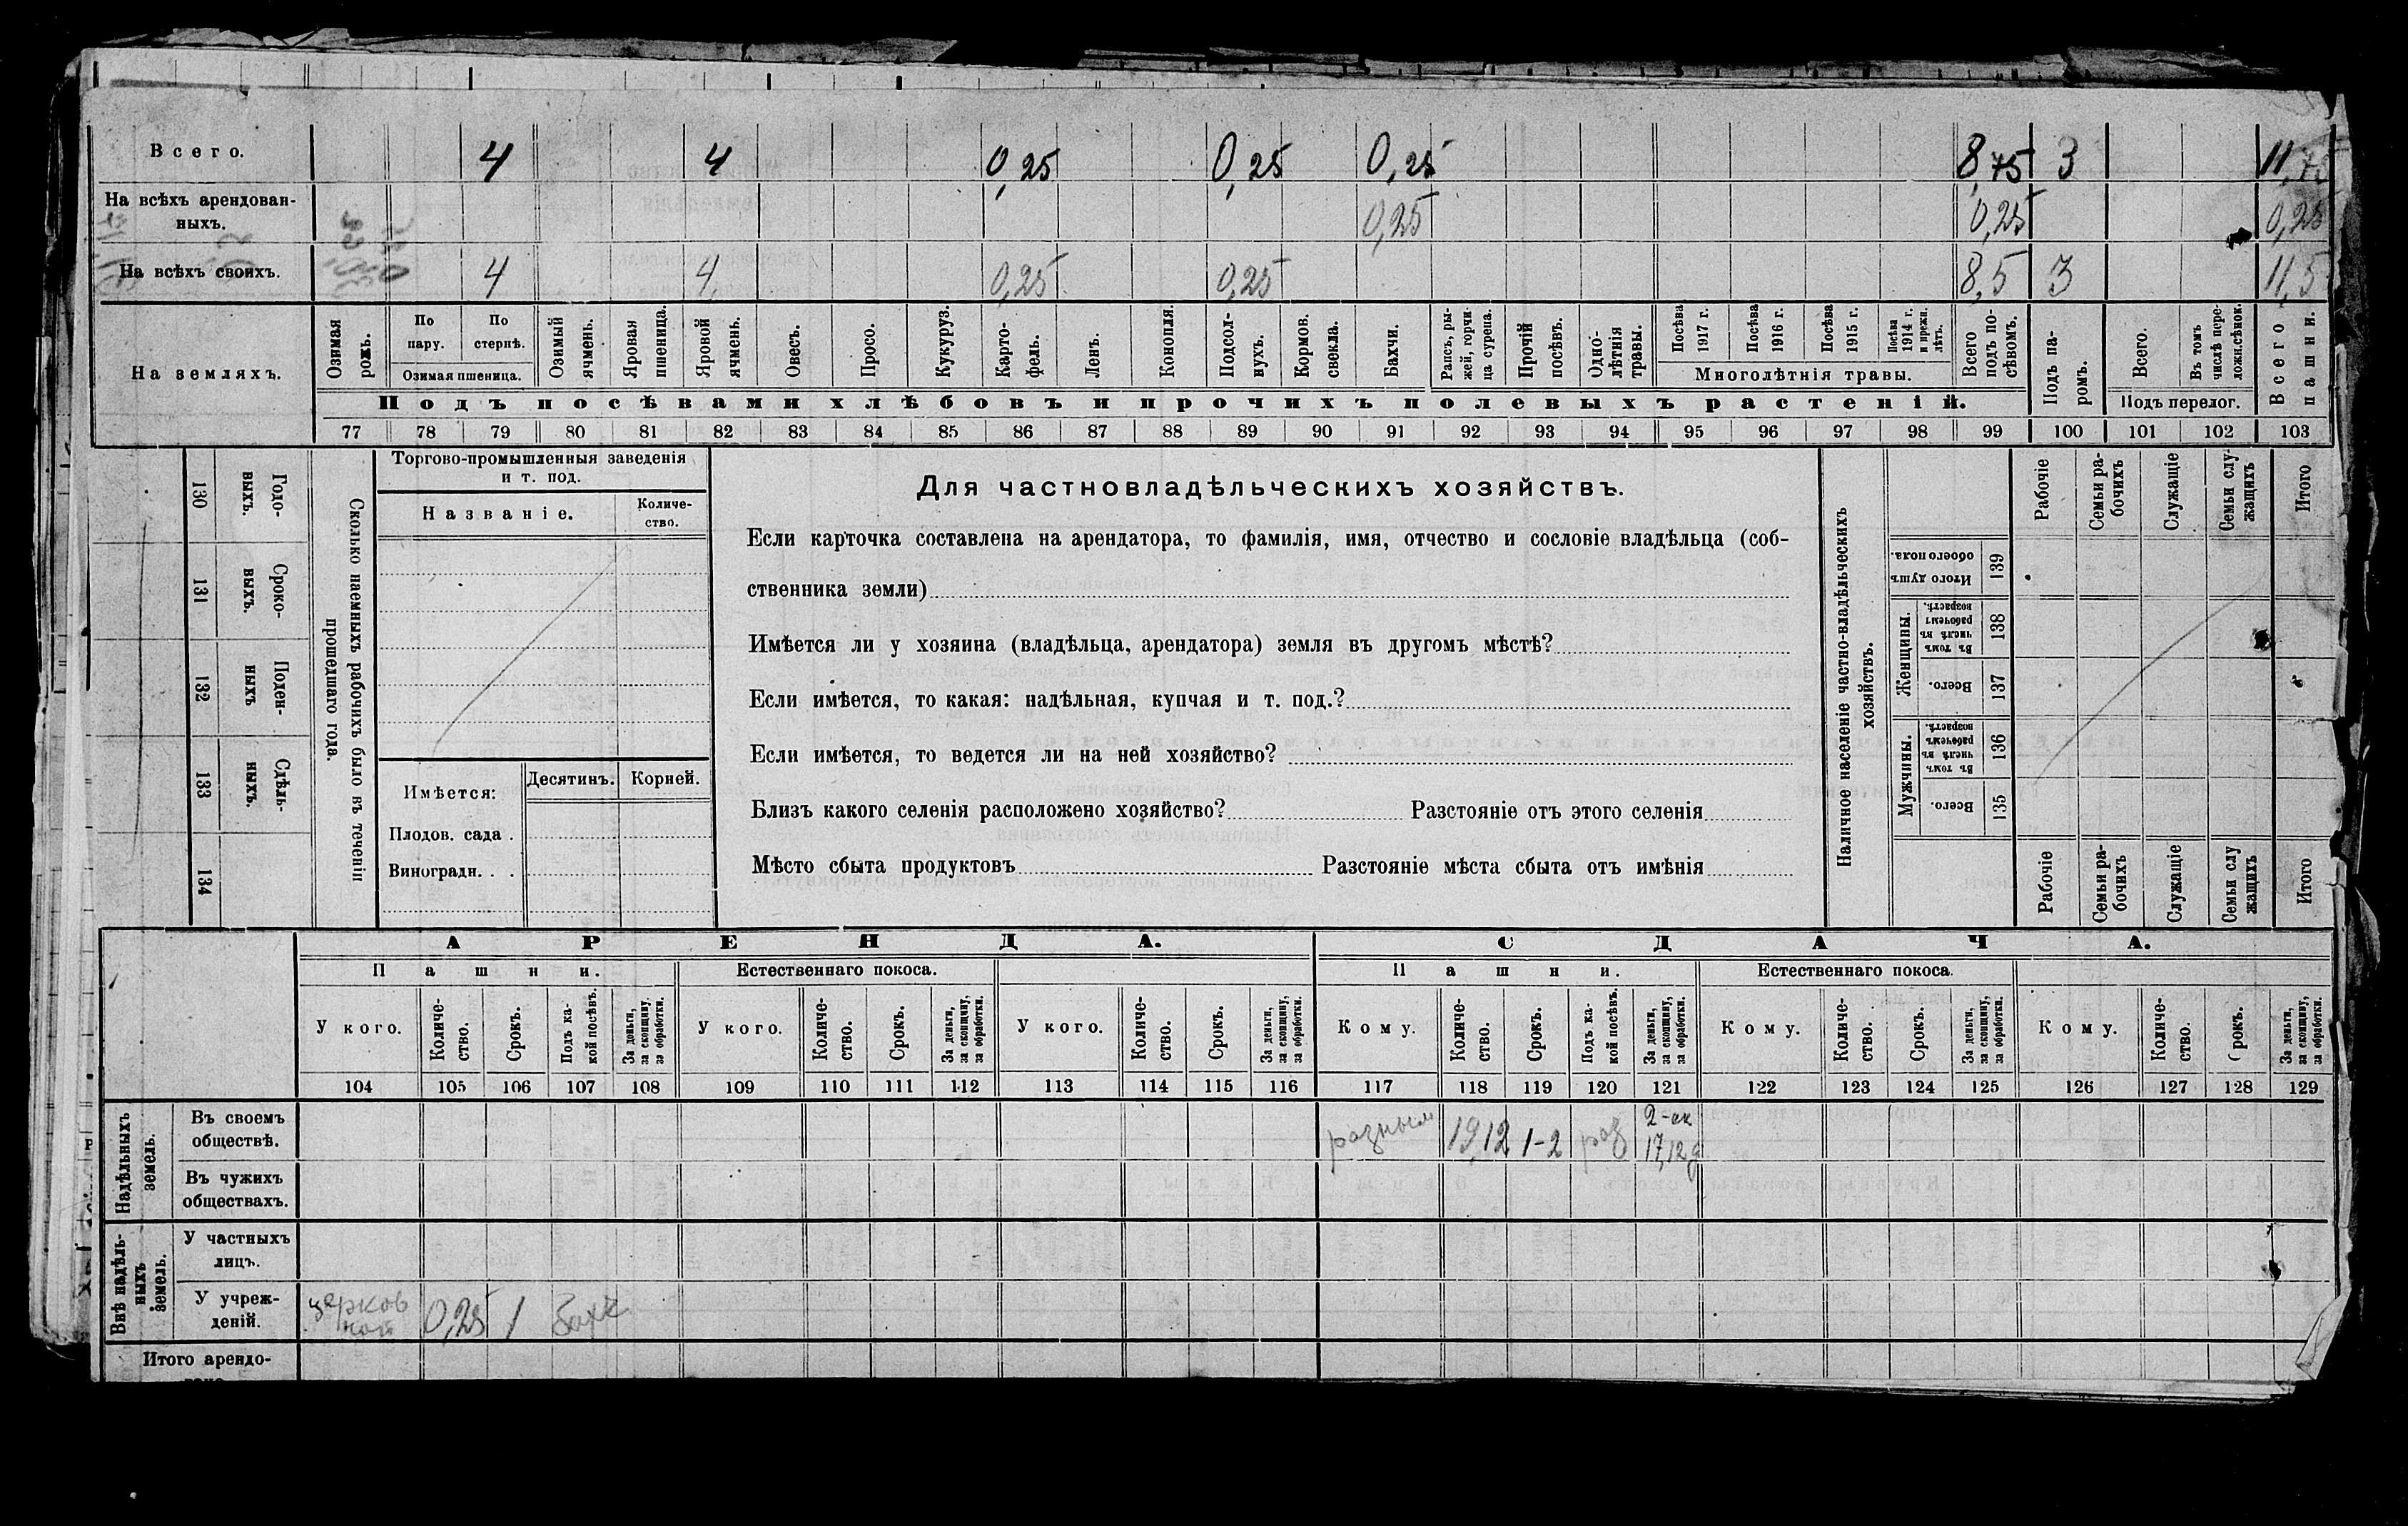 Всего. 4 4 0,25 0,25 0,25 8,75 3 11,75
На всѣхъ арендован-
ныхъ. 0,25 0,25 0,25
На всѣхъ своихъ. 4 4 0,25 0,25 8,5 3 11,5
На земляхъ.
Озимая рожь.
По пару.
По стернѣ.
Озимая пшеница.
Озимый ячмень.
Яровая пшеница.
Яровой ячмень.
Овесъ.
Просо.
Кукуруз.
Карто-
фель.
Ленъ.
Конопля.
Подсол-
нухъ.
Кормов. свекла.
Бахчи.
Рапсъ, ры-
жей, горчи-
ца сурепа.
Прочій посѣвъ.
Одно-
лѣтнія травы.
Посѣва 1917 г.
Посѣва 1916 г.
Посѣва 1915 г.
Посѣва 1914 г. и прежн. лѣтъ.
Многолѣтнія травы.
Всего подъ по-
сѣвомъ.
Подъ па-
ромъ.
Всего.
Въ томъ числѣ пере-
ложн.сѣнок.
Подъ перелог.
Всего пашни.
Подъ посѣвами хлѣбовъ и прочихъ полевыхъ растеній.
77 78 79 80 81 82 83 84 85 86 87 88 89 90 91 92 93 94 95 96 97 98 99 100 101 102 103
Годо-
выхъ.
130
Сроко-
выхъ.
131
Поден-
ныхъ
132
Сдѣль-
ныхъ.
133
134
Сколько наемныхъ рабочихъ было въ теченіи
прошедшаго года.
Торгово-промышленныя заведенія
и т. под.
Названіе.
Количе-
ство.
Имѣется:
Десятинъ. Корней.
Плодов. сада .
Виноградн. . .
Для частновладѣльческихъ хозяйствъ.
Если карточка составлена на арендатора, то фамилія, имя, отчество и сословіе владѣльца (соб-
ственника земли)
Имѣется ли у хозяина (владѣльца, арендатора) земля въ другомъ мѣстѣ?
Если имѣется, то какая: надѣльная, купчая и т. под.?
Если имѣется, то ведется ли на ней хозяйство?
Близъ какого селенія расположено хозяйство? Разстояніе отъ этого селенія
Мѣсто сбыта продуктовъ Разстояніе мѣста сбыта отъ имѣнія
Наличное населеніе частно-владѣльческихъ
хозяйствъ.
Рабочіе
Семьи ра-
бочихъ
Служащіе
Семьи слу-
жащихъ
Итого
Итого душъ
обоего пола.
139
Женщины.
Въ томъ числѣ въ рабочемъ возрастѣ.
138
Всего.
137
Мужчины.
Въ томъ числѣ въ рабочемъ возрастѣ.
136
Всего.
135
Рабочіе
Семьи ра-
бочихъ
Служащіе
Семьи слу
жащихъ
Итого
АРЕНДА. СДАЧА.
Пашни. Естественнаго покоса. Пашни. Естественнаго покоса.
У кого.
Количе-
ство.
Срокъ.
Подъ ка-
кой посѣвъ.
За деньги,
за скопщину,
за обработки.
У кого.
Количе-
ство.
Срокъ.
За деньги,
за скопщину,
за обработки.
У кого.
Количе-
ство.
Срокъ.
За деньги,
за скопщину,
за обработки.
Кому.
Количе-
ство.
Срокъ.
Подъ ка-
кой посѣвъ.
За деньги,
за скопщину,
за обработки.
Кому.
Количе-
ство.
Срокъ.
За деньги,
за скопщину,
за обработки.
Кому.
Количе-
ство.
Срокъ.
За деньги,
за скопщину,
за обработки.
104 105 106 107 108 109 110 111 112 113 114 115 116 117 118 119 120 121 122 123 124 125 126 127 128 129
Надѣльныхъ
земель.
Въ своемъ
обществѣ.
разным 19,12 1-2 раз 2-ск
17,12 д
Въ чужихъ
обществахъ.
Внѣ надѣль-
ныхъ
земель.
У частныхъ
лицъ.
У учреж-
деній.
церков
ной 0,25 1 Бахч
Итого арендо-